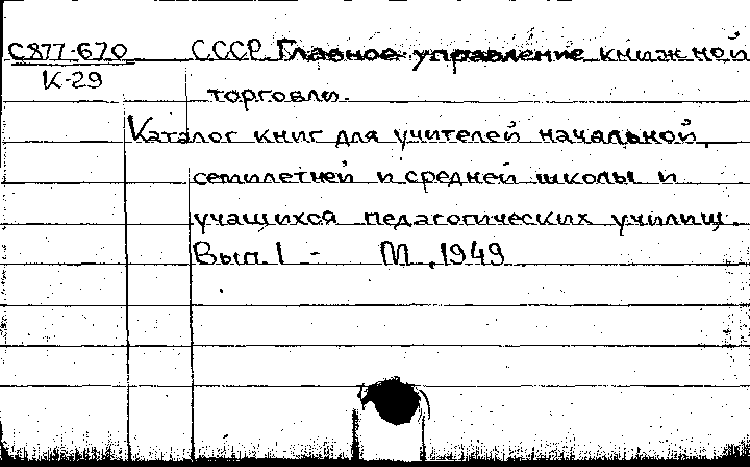 С877-670 СССР. Главное управление книжной
К-29
торговли.
Каталог книг для учителей начальной,
семилетней и средней школы и
учащихся педагогических училищ.
Вып. 1 - М., 1949